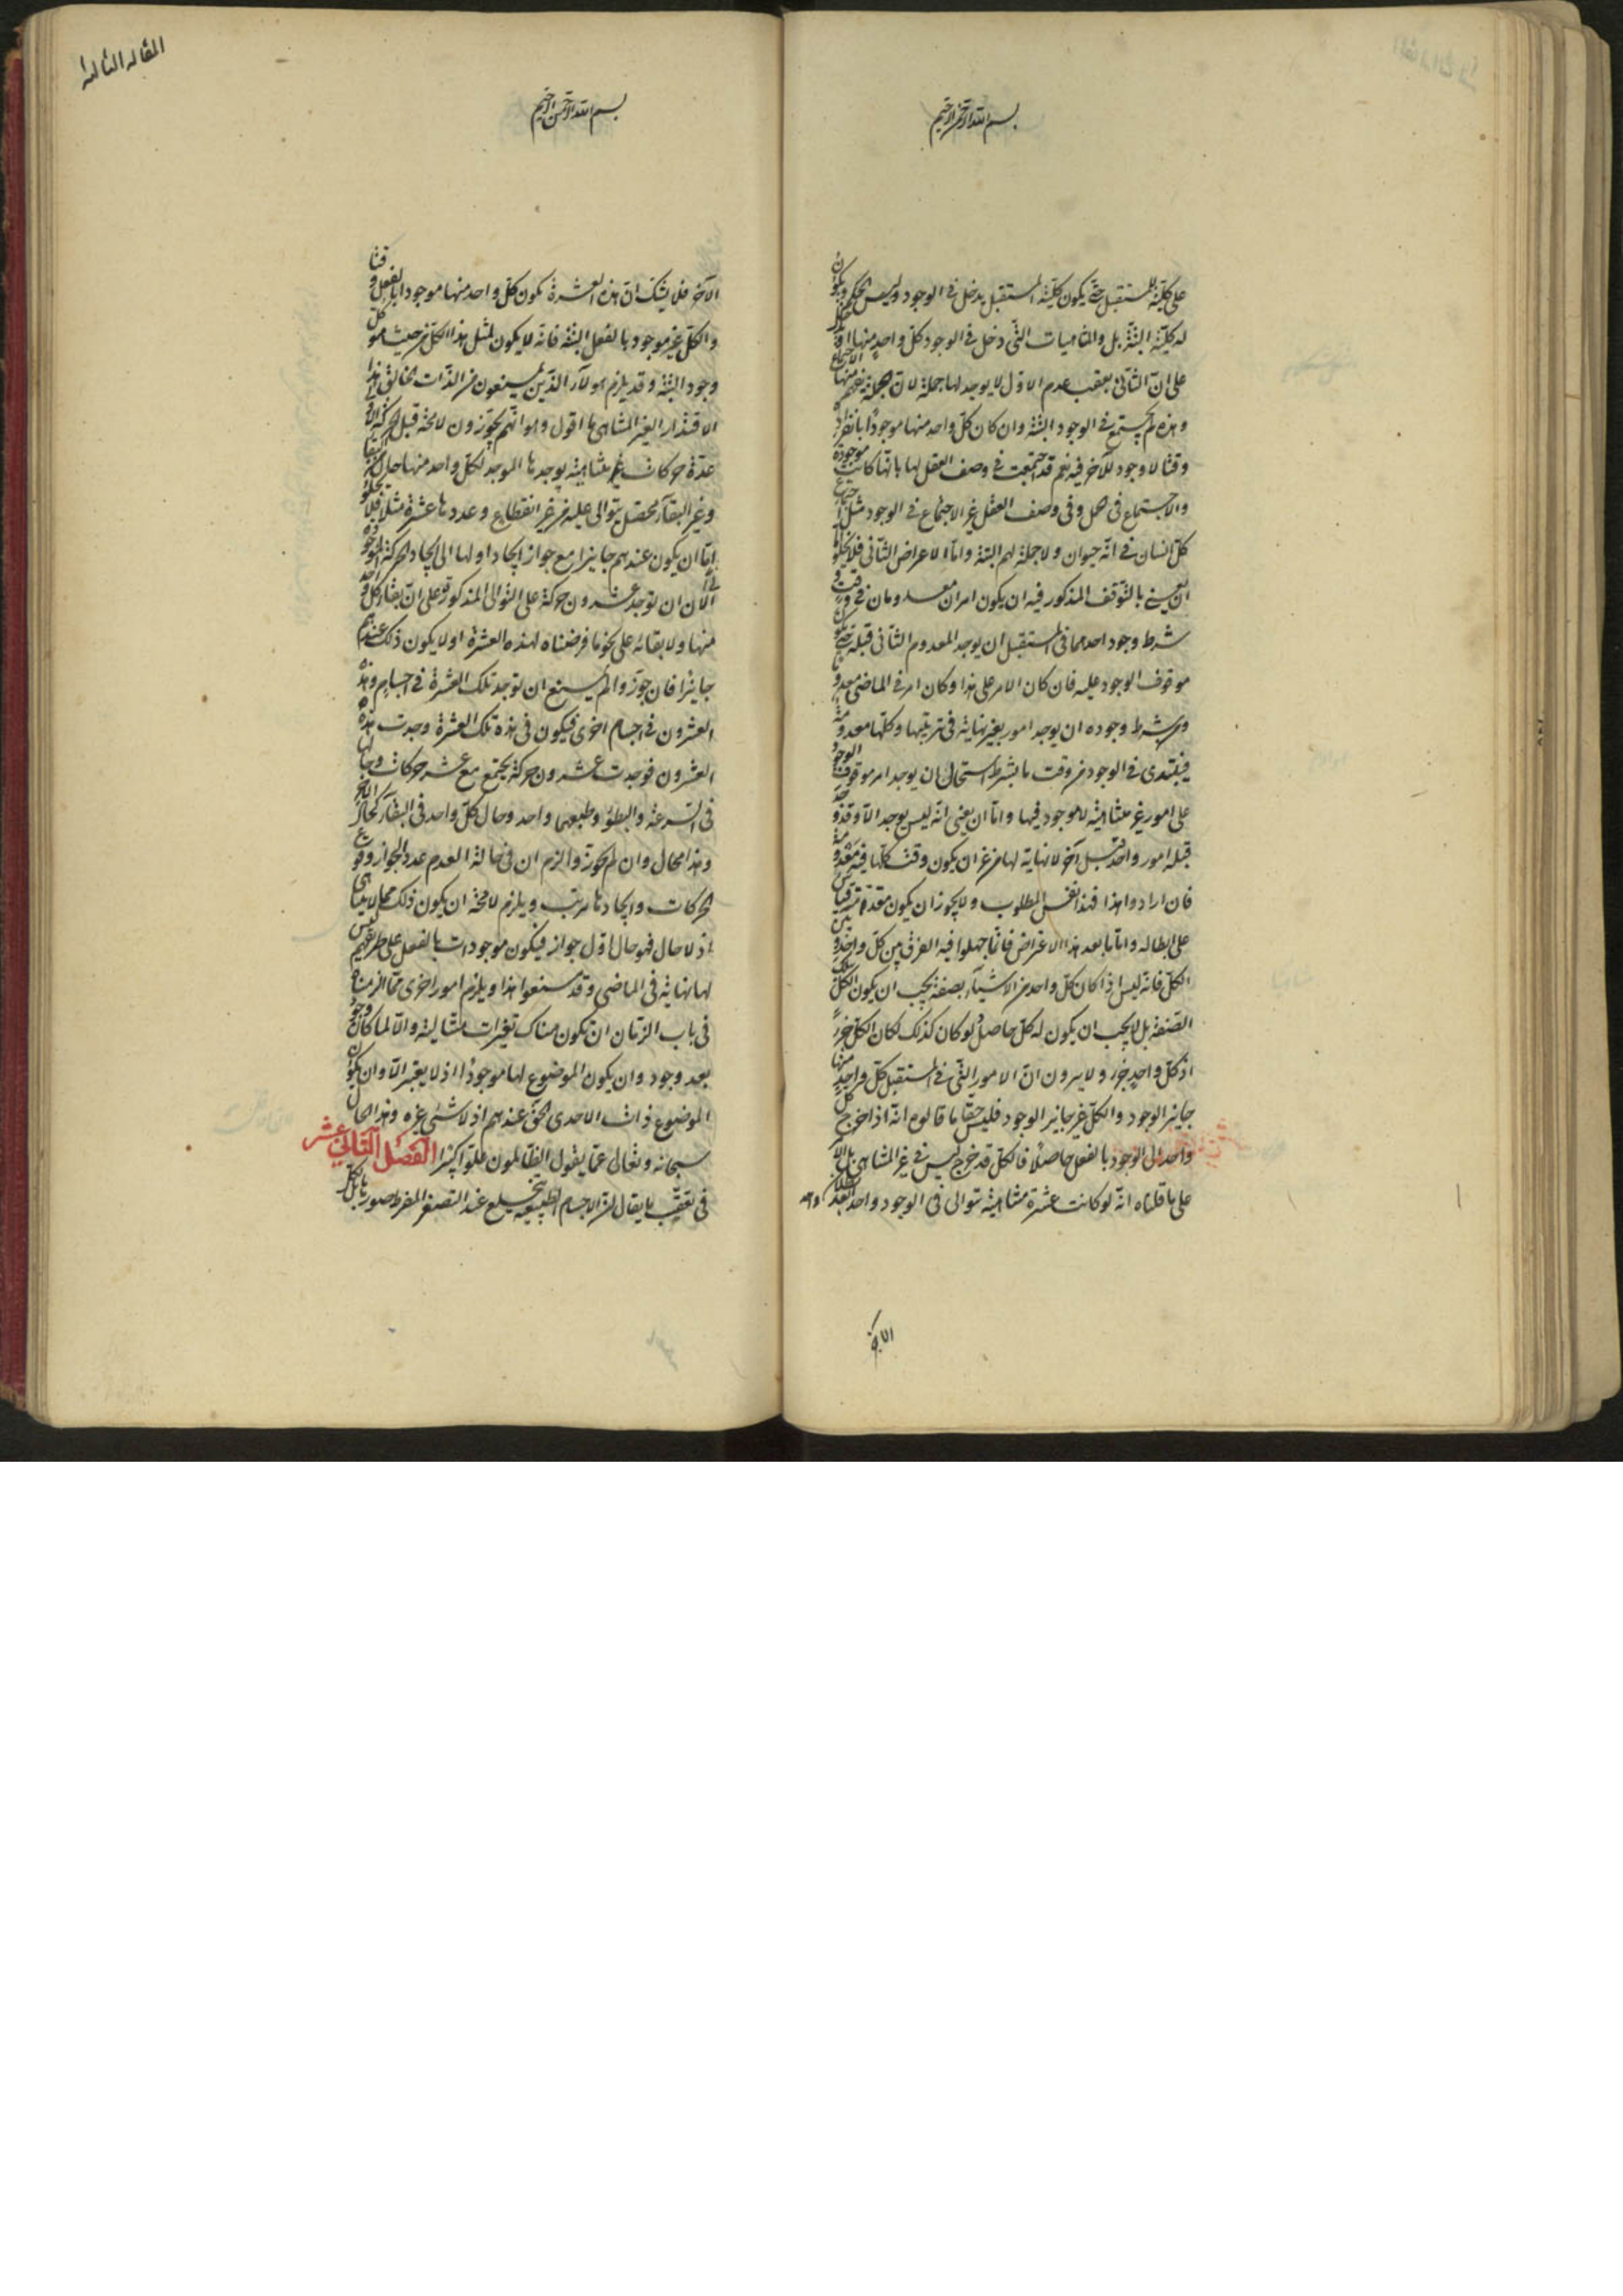 بسم الله الرحمن الرحيم
على كلية المستقبل حتى يكون كلية المستقبل يدخل في الوجود وليس الحكم ويكون
له كلية البتة بل والماهيات التي دخل في الوجود كل واحد منها
على ان الثاني يعقب عدم الاول لا يوجد لها جملة لان الجملة
وهذه لم يجتمع في الوجود البتة وان كان كل واحد منها موجودا بانفراده
وقتا لا وجود للآخر فيه نعم قد اجتمعت في وصف العقل لها بانها كانت موجودة
والاجتماع في حمل وفي وصف العقل غير الاجتماع في الوجود مثل اجتماع
كل انسان في انه حيوان ولا جملة لهم البتة واما الاعراض الثاني فلا يخلو اما
ان يعني بالتوقف المذكور فيه ان يكون امران معدومان في وقت و
شرط وجود احدهما في المستقبل ان يوجد المعدوم الثاني قبله حتى يكون
موقوف الوجود عليه فان كان الامر على هذا وكان امر في الماضي معدوما
ومن شرط وجوده ان يوجد امور بغير نهاية في ترتيبها وكلها معدومة
فيبتدى في الوجود من وقت ما بشرط استحال ان يوجد امر موقوف الوجود
على امور غير متناهية لا موجود فيها واما ان يعني انه ليس يوجد الا وقد وجد
قبله امور واحد قبل آخر لا نهاية لها من غير ان يكون وقت كلها فيه معدومة
فان ارادوا هذا فهذا نفس المطلوب ولا يجوز ان يكون مقدمة قياس
على ابطاله واما ما بعد هذا الاعراض فانما جهلوا فيه الفرق بين كل واحد وبين
الكل فانه ليس اذا كان كل واحد من الاشياء بصفة يجب ان يكون الكل بتلك
الصفة بل لا يجب ان يكون له كل حاصل ولو كان كذلك لكان الكل جزءا
اذ كل واحد جزء ولا يرون ان الامور التي في المستقبل كل واحد منها
جايز الوجود والكل غير جايز الوجود فليس حقا ما قالوه انه اذا خرج كل
واحد الى الوجود بالفعل حاصلا فالكل قد خرج ليس في غير المتناهي
على ما قلناه انه لو كانت عشرة متناهية توالى في الوجود واحد بعد
الآخر
المقالة الثالثة
بسم الله الرحمن الرحيم
الآخر فلا يشك ان هذه العشرة يكون كل واحد منها موجودا بالفعل وقتا
والكل غير موجود بالفعل البتة فانه لا يكون لمثل هذا الكل من حيث هو كل
وجود البتة وقد يلزم هؤلاء الذين يمنعون من الذات الخالق
الاقتدار الغير المتناهي ما اقول وهو انهم يجوزون لا محة قبل الحركة الاولى
عدة حركات غير متناهية يوجدها الموجد لكل واحد منها حال البقا
وغير البقاء محصل يتوالى عليه من غير انقطاع وعددها عشرة مثلا فلا يخلو
اما ان يكون عندهم جايزا مع جواز ايجاد اولها الى ايجاد الحركة الموجودة
الآن ان توجد عشرون حركة على التوالى المذكور وعلى ان بقاء كل واحد
منها ولا بقائه على نحو ما فرضناه لهذه العشرة او لا يكون ذلك عندهم
جايزا فان جوزوا لم يمنع ان توجد تلك العشرة في اجسام وهذه
العشرون في اجسام اخرى فيكون في مدة تلك العشرة وجدت هذه
العشرون فوجدت عشرون حركة يجتمع مع عشر حركات وحالها
في السرعة والبطؤ وطبيعها واحد وحال كل واحد في البقاء كحال الآخر
وهذا محال وان لم يجوزوا لزم ان في حالة العدم عدد الجواز وقوع
الحركات وايجادها مرتب ويلزم لا محة ان يكون ذلك مما لا يتناهى
اذ لا حال فهو حال اول جواز فيكون موجودات بالفعل على طريقهم ليس
لها نهاية في الماضي وقد منعوا هذا ويلزم امور اخرى مما الزمناه
في باب الزمان ان يكون هناك تغيرات متتالية والا لما كان وجود
بعد وجود وان يكون الموضوع لها موجودا اذ لا يتغير الا وان يكون
الموضوع ذات الاحدى الحق عندهم اذ لا شيء غيره وهذا محال
سبحانه وتعالى عما يقول الظالمون علوا كبيرا الفصل الثاني عشر
في تعقب ما يقال ان الاجسام الطبيعية ينخلع عند التصغر المفرط صورها بل لكل